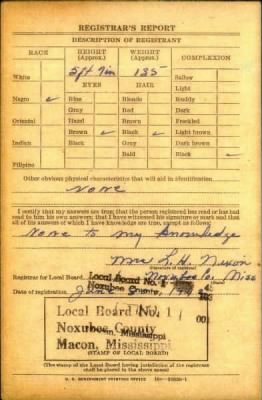 REGISTRAR'S REPORT
DESCRIPTION OF REGISTRANT
RACE HEIGHT (Approx.) WEIGHT (Approx.) COMPLEXION
White 5 ft 7 in 135 Sallow
EYES HAIR Light
Negro ✓ Blue Blonde Ruddy
Gray Red Dark
Oriental Hazel Brown Freckled
Brown ✓ Black ✓ Light brown
Indian Black Gray Dark brown
Bald Black ✓
Filipino
Other obvious physical characteristics that will aid in identification
None
I certify that my answers are true; that the person registered has read or has had
read to him his own answers; that I have witnessed his signature or mark and that
all of his answers of which I have knowledge are true, except as follows:
None to my Knowledge
Mrs L. H. Nixon
(Signature of registrar)
Registrar for Local Board Local Board No. 1 Noxubee Co. Miss
Noxubee County,
Date of registration June 194
Mississippi
Local Board No. 1
Noxubee County
Macon, Mississippi
(STAMP OF LOCAL BOARD)
(The stamp of the Local Board having jurisdiction of the registrant
shall be placed in the above space)
U. S. GOVERNMENT PRINTING OFFICE